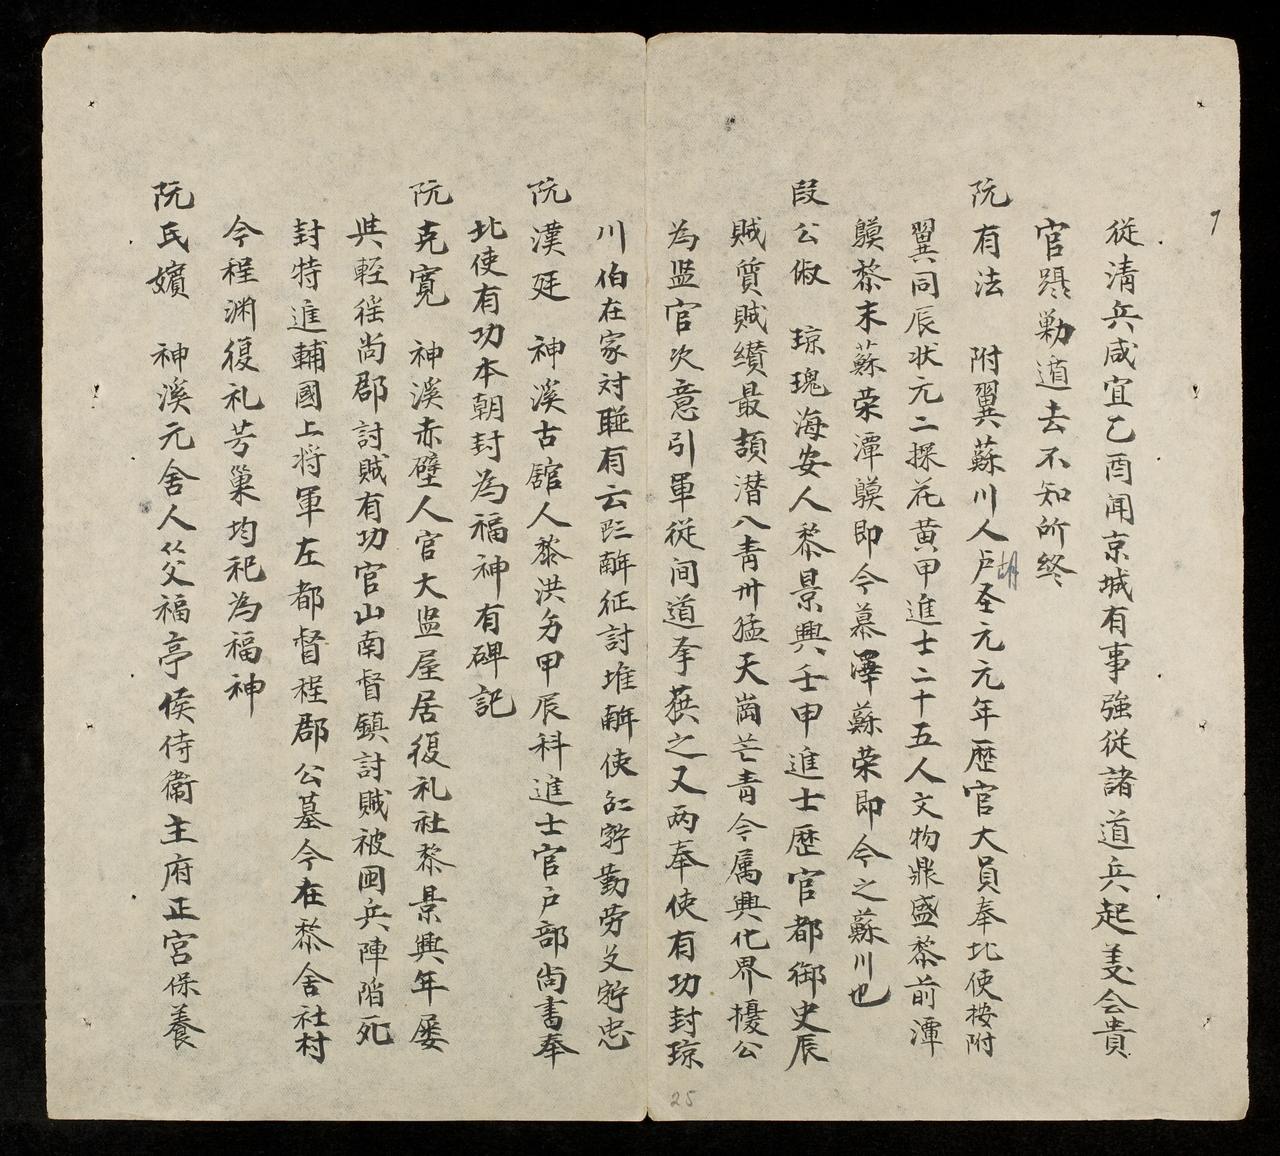 從清兵咸宜乙酉聞京城有事強從諸道兵起義会貴
官躡勦遁去不知所終
阮有法 附翼蘇川人胡圣元元年歷官大員奉北使按附
翼同辰状元二探花黄甲進士二十五人文物鼎盛黎前潭
黎末蘇荣潭即今慕澤蘇荣即今之蘇川也
段公俶 琼瑰海安人黎景興壬申進士歷官都御史辰
賊質賊纘最頡潜八青州猛天崗芒青今属興化界擾公
為监官次意引軍從间道李之又两奉使有功封琼
川伯在家対聯有云征討堆使勤劳忠
阮漢廷 神溪古舘人黎洪甲辰科進士官户部尚書奉
北使有功本朝封為福神有碑記
阮克寛 神溪赤壁人官大监屋居復礼社黎景興年屡
與輊徭尚郡討賊有功官山南督鎮討賊被囲兵陣陷死
封特進輔國上将軍左都督程郡公墓今在黎舍社村
今程渊復礼芳巢均祀為福神
阮氏嬪 神溪元舍人父福亭侯侍衛主府正宮保養
25